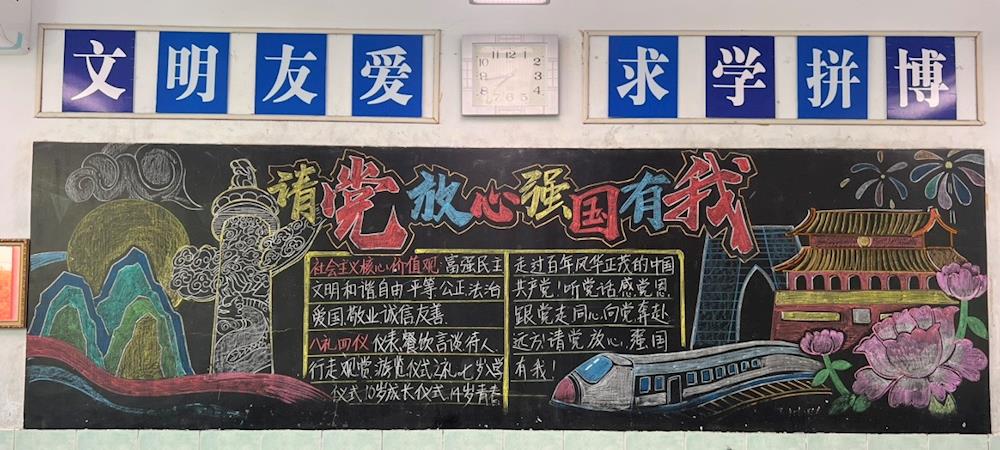 文明友爱
求学拼博
请党放心强国有我
社会主义核心价值观:富强民主
文明和谐自由平等公正法治
爱国敬业诚信友善
八礼四仪 仪表餐饮言谈待人
行走观赏游览仪式之礼.七岁入学
仪式10岁成长仪式14岁青春
走过百年风华正茂的中国
共产党!听党话感党恩
跟党走同心向党奔赴
远方!请党放心,强国
有我!